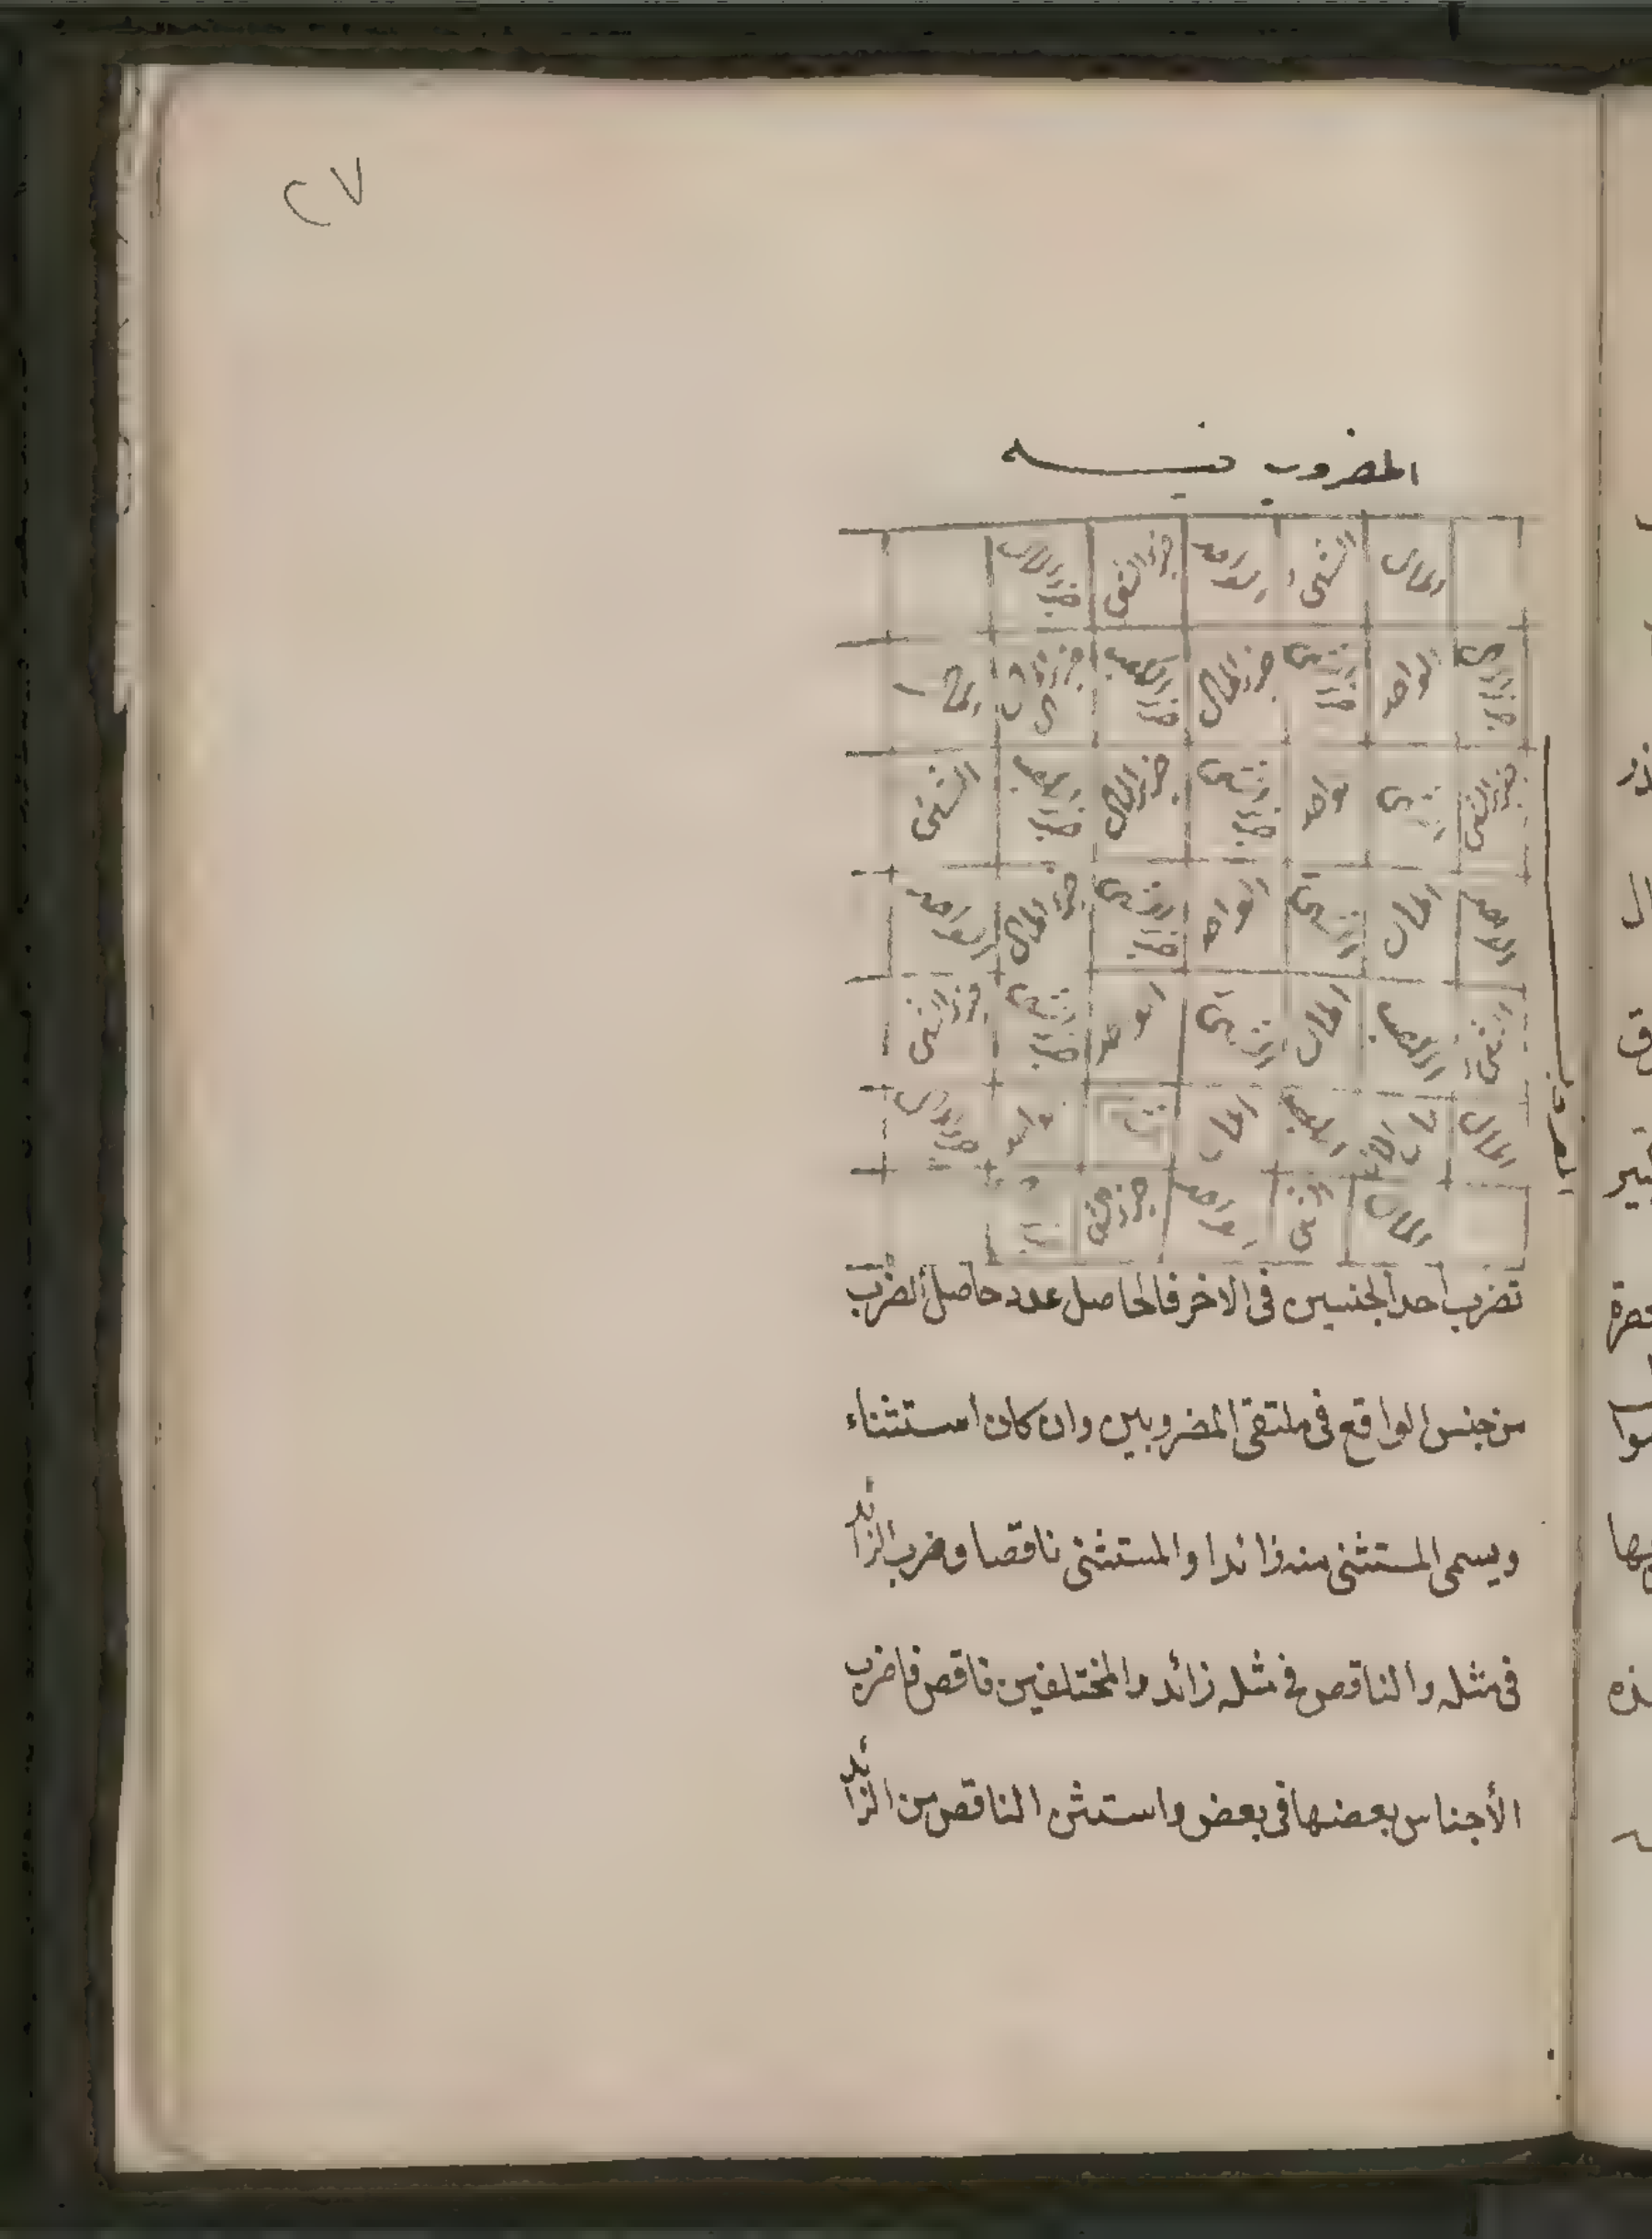 ٢٧
المضروب فيه
المال الشئ الواحد جزء الشئ جزء المال
جزء المال الواحد جزء الشئ جزء المال جزء الكعب جزء مال المال
جزء الشئ الشئ الواحد جزء الشئ جزء المال جزء الكعب الشئ
الواحد المال الشئ الواحد جزء الشئ جزء المال الواحد
الشئ الكعب المال الشئ الواحد جزء الشئ جزء الشئ
المال الكعب المال الواحد جزء المال
المال الشئ الواحد جزء الشئ
المضروب
تضرب احد الجنسين فى الاخر فالحاصل عدد حاصل الضرب
من جنس الواقع فى ملتقى المضروبين وان كان استثناء
ويسمى المستثنى منه زائدا والمستثنى ناقصا وضرب الزائد
فى مثله والناقص فى مثله زائد والمختلفين ناقص فاضرب
الأجناس بعضها فى بعض واستثن الناقص من الزائد